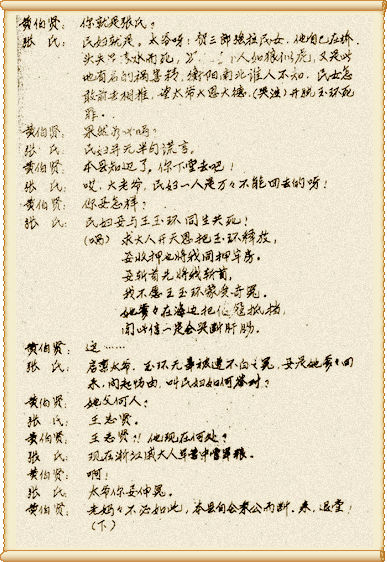 黄伯贤： 你就是张氏？
张 氏： 民妇就是。太爷呀！贺三郎强抢民女，他自己在桥
头失足落水而死，人如狼似虎，又是当
地有名的祸害精，衡阳南北谁人不知，民女怎
敢前去相推，望太爷大恩大德，(哭泣)开脱玉环死
罪‥
黄伯贤： 果然如此吗？
张 氏： 民妇并无半句谎言。
黄伯贤： 本县知道了。你下堂去吧！
张 氏： 哎，大老爷，民妇一人是万々不能回去的呀！
黄伯贤： 你要怎样？
张 氏： 民妇要与王玉环同生共死！
(唱) 求大人开天恩把玉环释放，
要收押也将我同押牢房。
要斩首先将我斩首，
我不愿王玉环蒙受奇冤。
她爹々在海边把倭寇抵挡，
闻此信一定会哭断肝肠。
黄伯贤： 这……
张 氏： 启禀太爷，玉环无辜被遭不白之冤，要是她爹々回
来，问起情由，叫民妇如何答对？
黄伯贤： 她父何人？
张 氏： 王志贤。
黄伯贤： 王志贤？！他现在何处？
张 氏： 现在浙江戚大人军营中管军粮。
黄伯贤： 啊！
张 氏： 太爷你要伸冤。
黄伯贤： 老妈々不必如此，本县自会秉公而断。来，退堂！
(下)